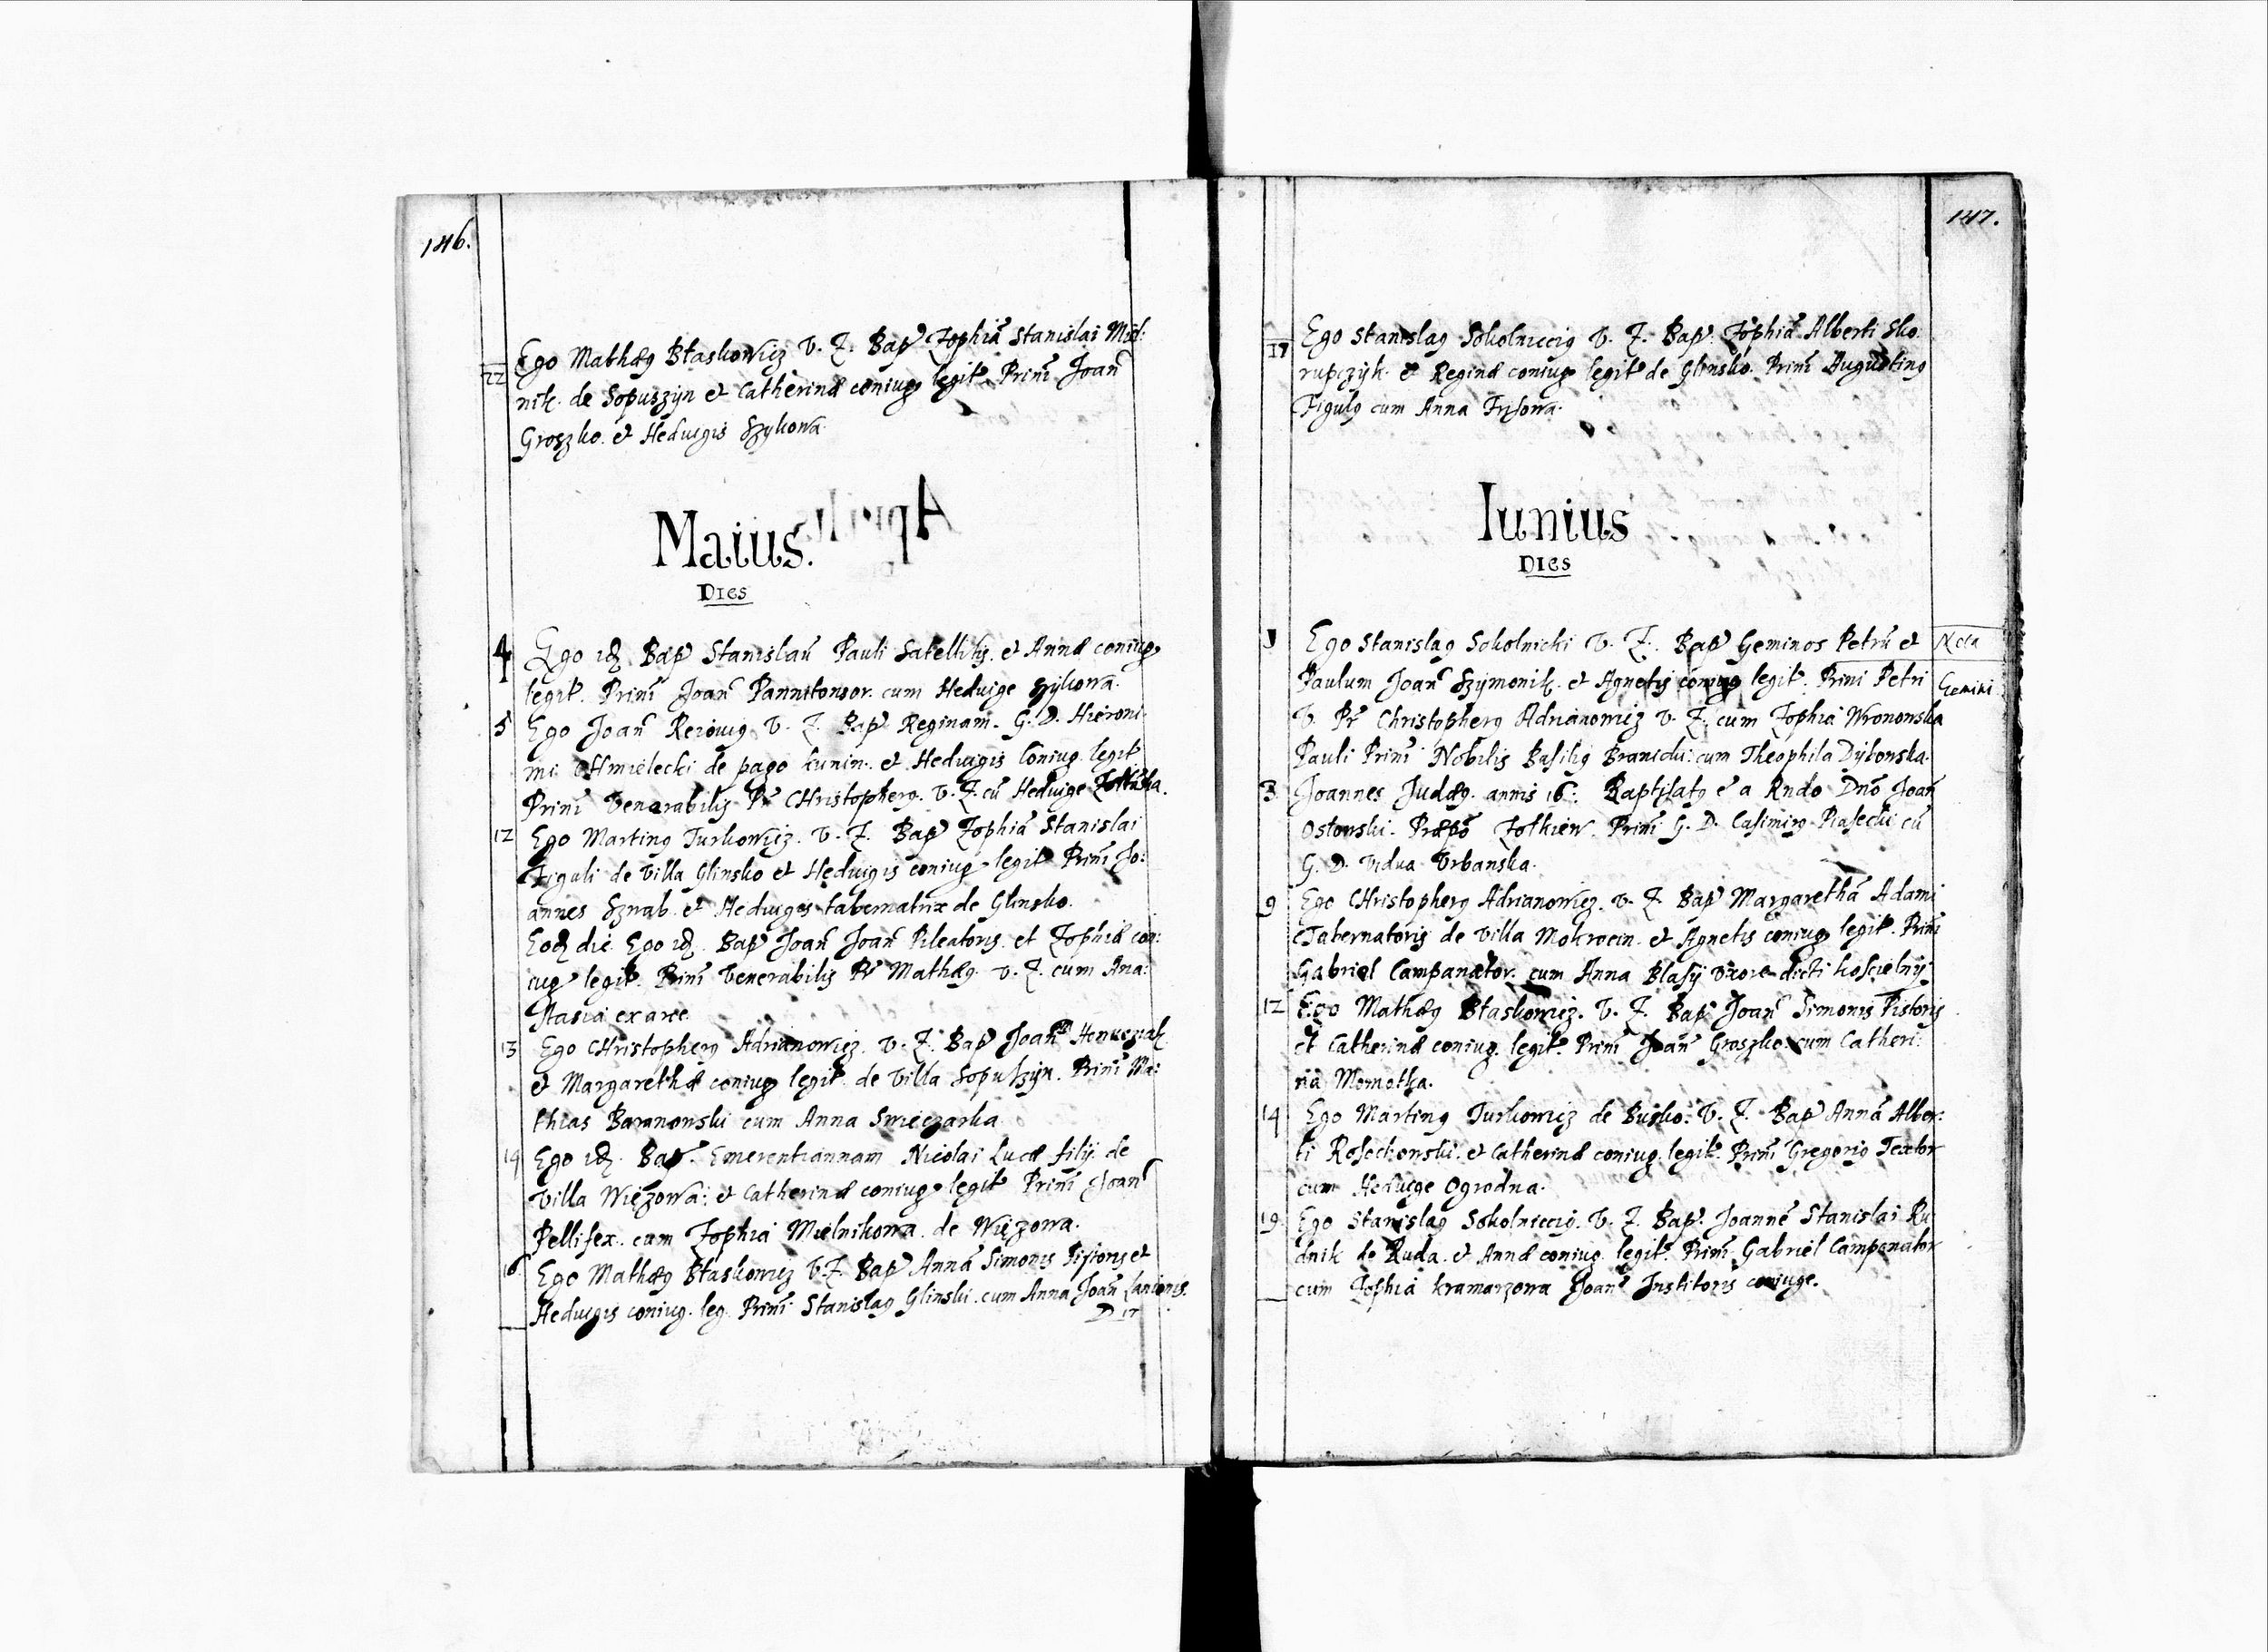 146.
22 Ego Mathæg Błaskowicz V. Z. Bap Zophiã Stanislai Miel:
nik. de Sopuszyn et Catherinæ coniug legit. Prim̃ Joañ
Groszko. et Hedvigis Szykowa
Maius.
Dies
4 Ego idẽ. Bap Stanislaũ Pauli Satellitis. et Annæ coniug
legit. Prim̃ Joañ Pannitonsor. cum Hedvige Szykowa.
5 Ego Joañ V. Z. Bap Reginam. G. D. Hieroni-
mi Chmielecki de pago Kunin. et Hedvigis Coniug. legit
Prim̃ Venerabilis Pr Christopherg. V. Z. cũ Hedvige
12 Ego Marting Turkowicz. V. Z. Bap Zophiã Stanislai
Figuli de Villa Glinsko et Hedvigis coniug legit Prim̃ Jo:
annes Sznab. et Hedviges tabernatrix de Glinsko.
Eodẽ die Ego idẽ. Bap Joañ Joañ Pileatoris. et Zophiæ con:
iug legit. Prim̃ Venerabilis Pr Mathæg. V. Z. cum Ana:
stasia ex arce
13 Ego Christopherg Adrianowicz. V. Z. Bap Joañ
et Margarethæ coniug legit. de Villa Sopuszyn. Prim̃ Ma:
thias Baranowski cum Anna Swieczarka
14 Ego idẽ. Bap. Emerentiannam Nicolai Lucæ filij de
Villa Więzowa: et Catherinæ coniug legit Prim̃ Joañ
Pellifex. cum Zophia Mielnikowa. de Więzowa.
16 Ego Mathæg Błaskowicz V. Z. Bap Annã Simonis Pistoris et
Hedvigis coniug. leg. Prim̃ Stanislag Glinski. cum Anna Joañ Lanionis.
D 17
147.
17 Ego Stanislag Sokolniccig V. Z. Bap. Zophiã Alberti Sko
rupczyk. et Reginæ coniug legit de Glinsko. Prim̃ Augusting
Figulg cum Anna
Iunius
Dies
Ego Stanislag Sokolnicki V. Z. Bap Geminos Petrũ et
Nota
Paulum Joañ Szymonik. et Agnetis coniug legit. Prim̃ Petri
Gemini
V. Pr Christopherg Adrianowicz V. Z. cum Zophia Wronowska
Pauli Prim̃ Nobilis Basilig Branicki: cum Theophila Dykowska.
3 Joannes Judæg. annis 16. Baptisatg ẽ a Rndo Dnõ Joañ
Ostowski. Præpõ Zolkiew. Prim̃ G. D. Casimirg Piasecki cũ
G. D. Vidua Urbanska.
9 Ego Christopherg Adrianowicz. V. Z. Bap Margarethã Adami
Tabernatoris de Villa Mokrocin. et Agnetis coniug legit. Prim̃
Gabriel Campanator. cum Anna Blasij Uxore dicti koscielnij
12 Ego Mathæg Błaskowicz. V. Z. Bap Joañ Simonis Pistoris
et Catherinæ coniug. legit. Prim̃ Joañ Groszko cum Catheri:
na Momotka.
14 Ego Marting Turkowicz de Busko: V. Z. Bap Annã Alber:
ti et Catherinæ coniug. legit. Prim̃ Gregorig Textor
cum Hedvige Ogrodna.
19 Ego Stanislag Sokolniccig. V. Z. Bap. Joannẽ Stanislai Ru
dnik de Ruda. et Annæ coniug. legit. Prim̃ Gabriel Campanator
cum Zophia kramarzowa Joañ Institoris coniuge.